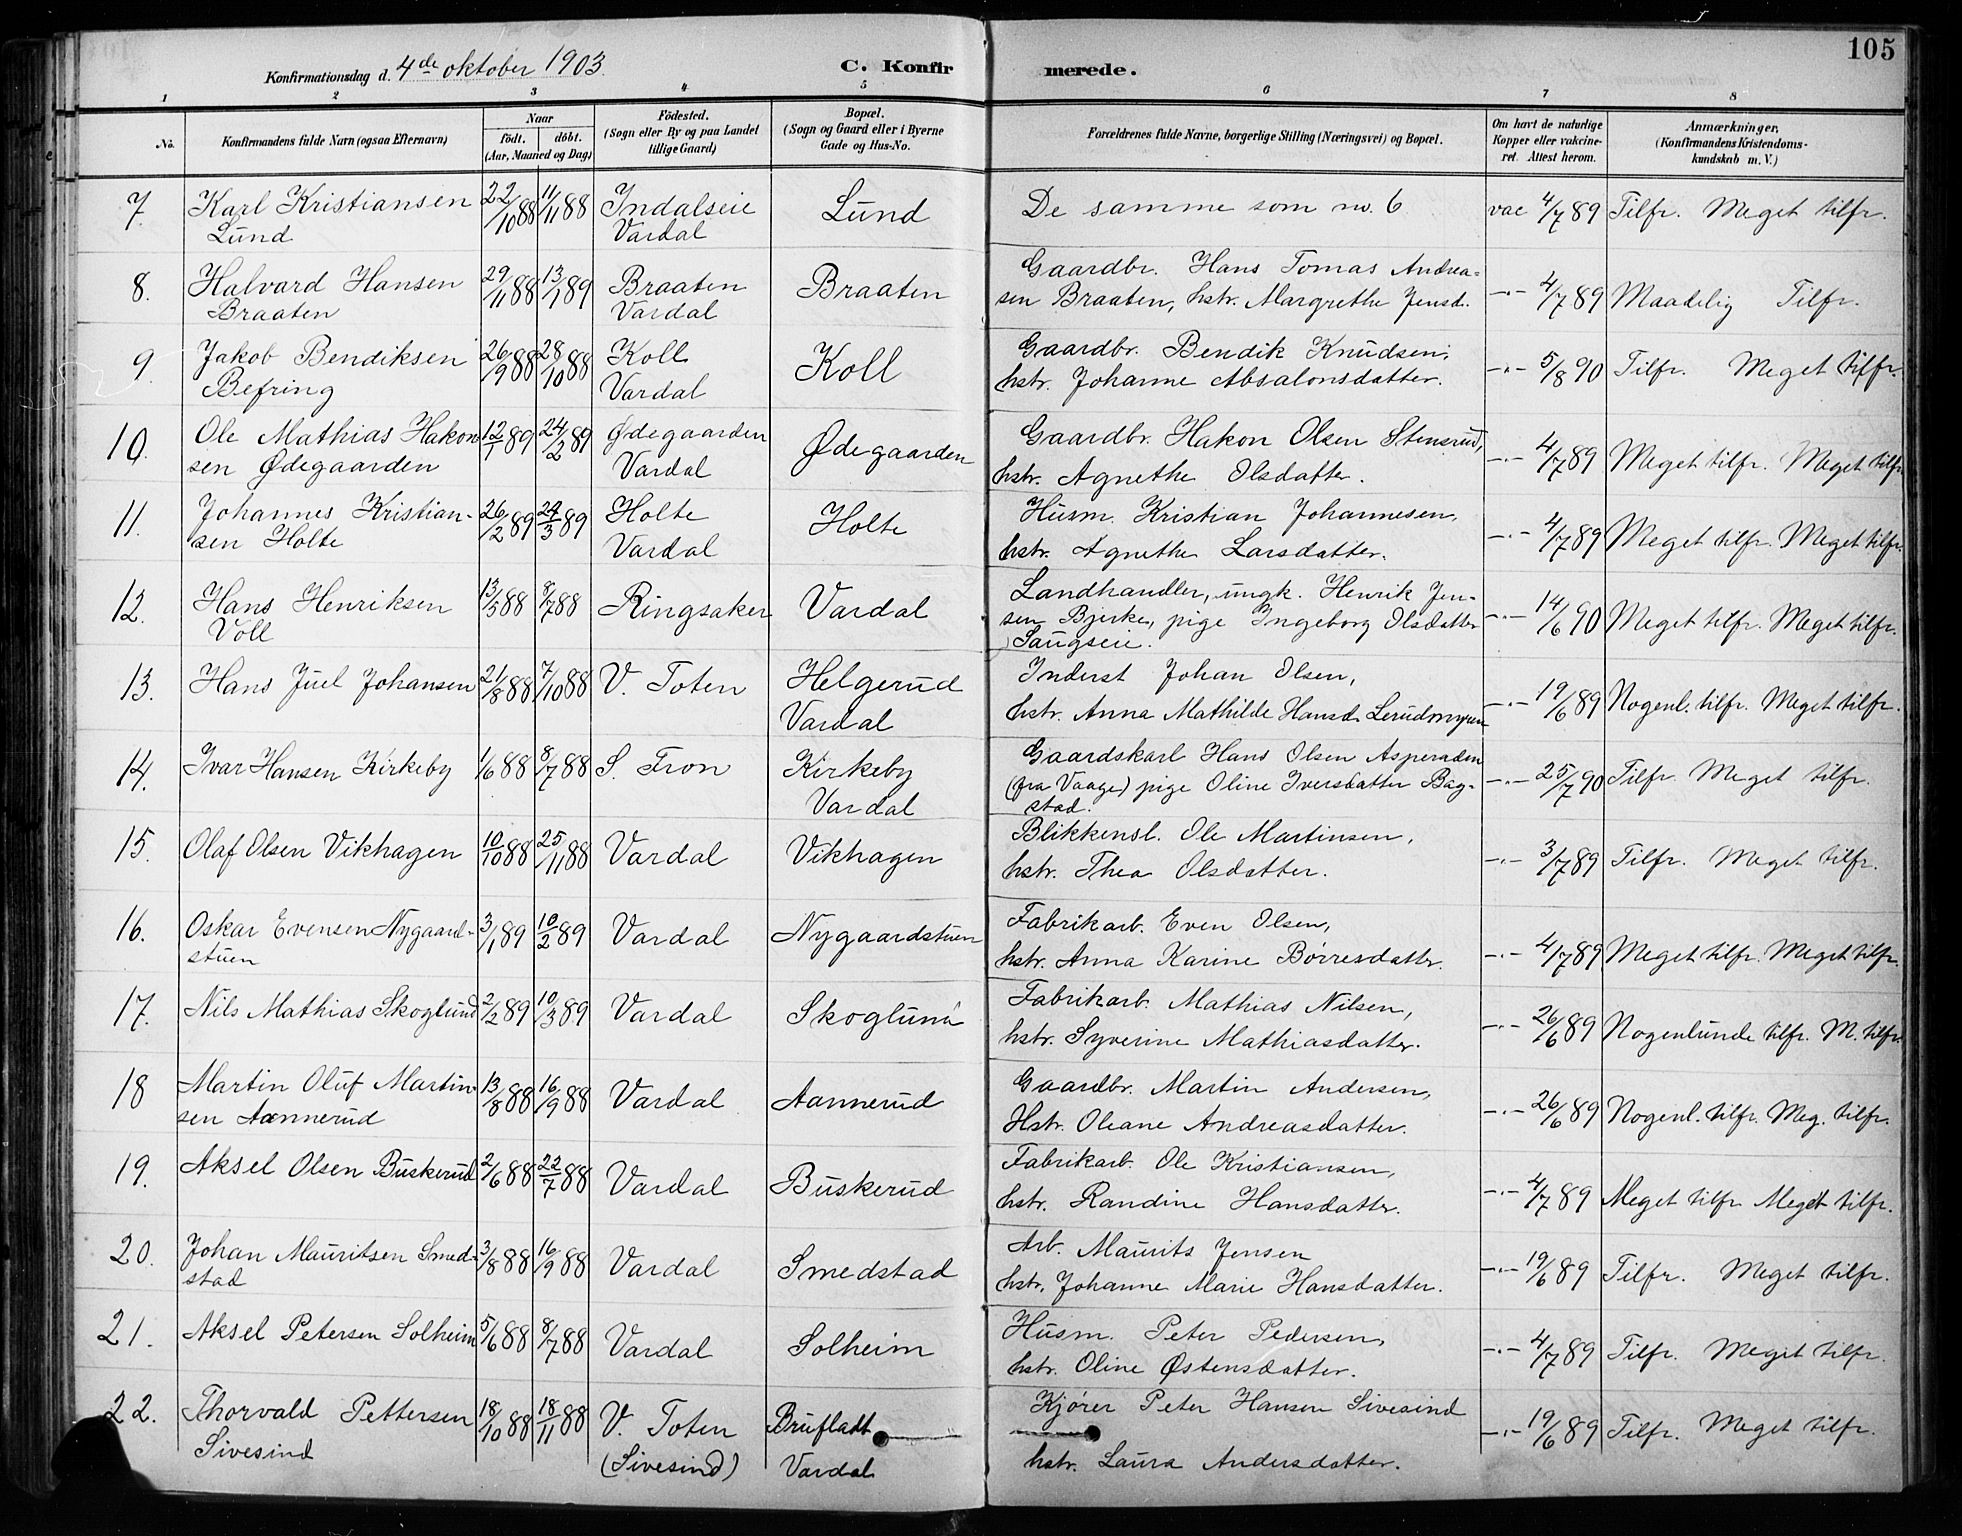 105
Konfirmationsdag d. 4de oktober 1903.
C. Konfirmerede.
1 2 3 4 5 6 7 8
No.
Konfirmandens fulde Navn (ogsaa Efternavn)
Naar
født. døbt.
(Aar, Maaned og Dag)
Fødested.
(Sogn eller By og paa Landet
tillige Gaard)
Bopæl.
(Sogn og Gaard eller i Byerne
Gade og Hus-No.
Forældrenes fulde Navne, borgerlige Stilling (Næringsvei) og Bopæl.
Om havt de naturlige
Kopper eller vakcine-
ret. Attest herom.
Anmærkninger,
(Konfirmandens Kristendoms-
kundskab m. V.)
7. Karl Kristiansen 22/10 88 11/11 88 Indalseie Lund De samme som no. 6 vac 4/7 89 Tilfr. Meget tilfr.
Lund Vardal
8. Halvard Hansen 29/11 88 13/1 89 Braaten Braaten Gaardbr. Hans Tomas Andrea-
Braaten Vardal sen Braaten, hstr. Margrethe Jensd. -"- 4/7 89 Maadelig Tilfr.
9. Jakob Bendiksen 26/9 88 28/10 88 Koll Koll Gaardbr. Bendik Knudsen,
Befring Vardal hstr. Johanne Absalonsdatter. -"- 5/8 90 Tilfr. Meget tilfr.
10. Ole Mathias Hakon- 12/1 89 24/2 89 Ødegaarden Ødegaarden Gaardbr. Hakon Olsen Stensrud,
sen Ødegaarden Vardal hstr. Agnethe Olsdatter. -"- 4/7 89 Meget tilfr. Meget tilfr
11. Johannes Kristian- 26/2 89 24/3 89 Holte Holte Husm. Kristian Johannesen,
sen Holte Vardal hstr. Agnethe Larsdatter. -"- 4/7 89 Meget tilfr. Meget tilfr.
12. Hans Henriksen 13/5 88 8/7 88 Ringsaker Vardal Landhandler, ungk. Henrik Jen-
Voll sen Bjerke, pige Ingeborg Olsdatter -"- 14/6 90 Meget tilfr. Meget tilfr.
Saugseie.
13. Hans Juel Johansen 21/8 88 7/10 88 V. Toten Helgerud Inderst Johan Olsen,
Vardal hstr. Anna Mathilde Hansd. Lerudmyren -"- 19/6 89 Nogenl. tilfr. Meget tilfr.
14. Ivar Hansen Kirkeby 1/6 88 8/7 88 S. Fron Kirkeby Gaardskarl Hans Olsen Asperaden
Vardal (fra Vaage) pige Oline Iversdatter Bag- -"- 25/7 90 Tilfr. Meget tilfr.
stad.
15. Olaf Olsen Vikhagen 10/10 88 25/11 88 Vardal Vikhagen Blikkensl. Ole Martinsen,
hstr. Thea Olsdatter. -"- 3/7 89 Tilfr. Meget tilfr.
16. Oskar Evensen Nygaard- 3/1 89 10/2 89 Vardal Nygaardstuen Fabrikarb. Even Olsen,
stuen hstr. Anna Karine Børresdatter. -"- 4/7 89 Meget tilfr. Meget tilfr.
17. Nils Mathias Skoglund 2/2 89 10/3 89 Vardal Skoglund Fabrikarb. Mathias Nilsen,
hstr. Syverine Mathiasdatter. -"- 26/6 89 Nogenlunde tilfr. M. tilfr
18 Martin Oluf Martin- 13/8 88 16/9 88 Vardal Aannerud Gaardbr. Martin Andersen,
sen Aannerud Hstr. Oleane Andreasdatter. -"- 26/6 89 Nogenl. tilfr. Meg. tilfr.
19. Aksel Olsen Buskerud 2/6 88 22/7 88 Vardal Buskerud Fabrikarb. Ole Kristiansen,
hstr. Randine Hansdatter. -"- 4/7 89 Meget tilfr Meget tilfr.
20. Johan Mauritsen Smed- 3/8 88 16/9 88 Vardal Smedstad Arb. Maurits Jensen
stad hstr. Johanne Marie Hansdatter. -"- 19/6 89 Tilfr. Meget tilfr.
21. Aksel Petersen Solheim 5/6 88 8/7 88 Vardal Solheim Husm. Peter Pedersen,
hstr. Oline Østensdatter. -"- 4/7 89 Tilfr. Meget tilfr.
22. Thorvald Pettersen 18/10 88 18/11 88 V. Toten Brufladt Kjører Peter Hansen Sivesind
Sivesind (Sivesind) Vardal hstr. Laura Andersdatter. -"- 19/6 89 Tilfr. Meget tilfr.